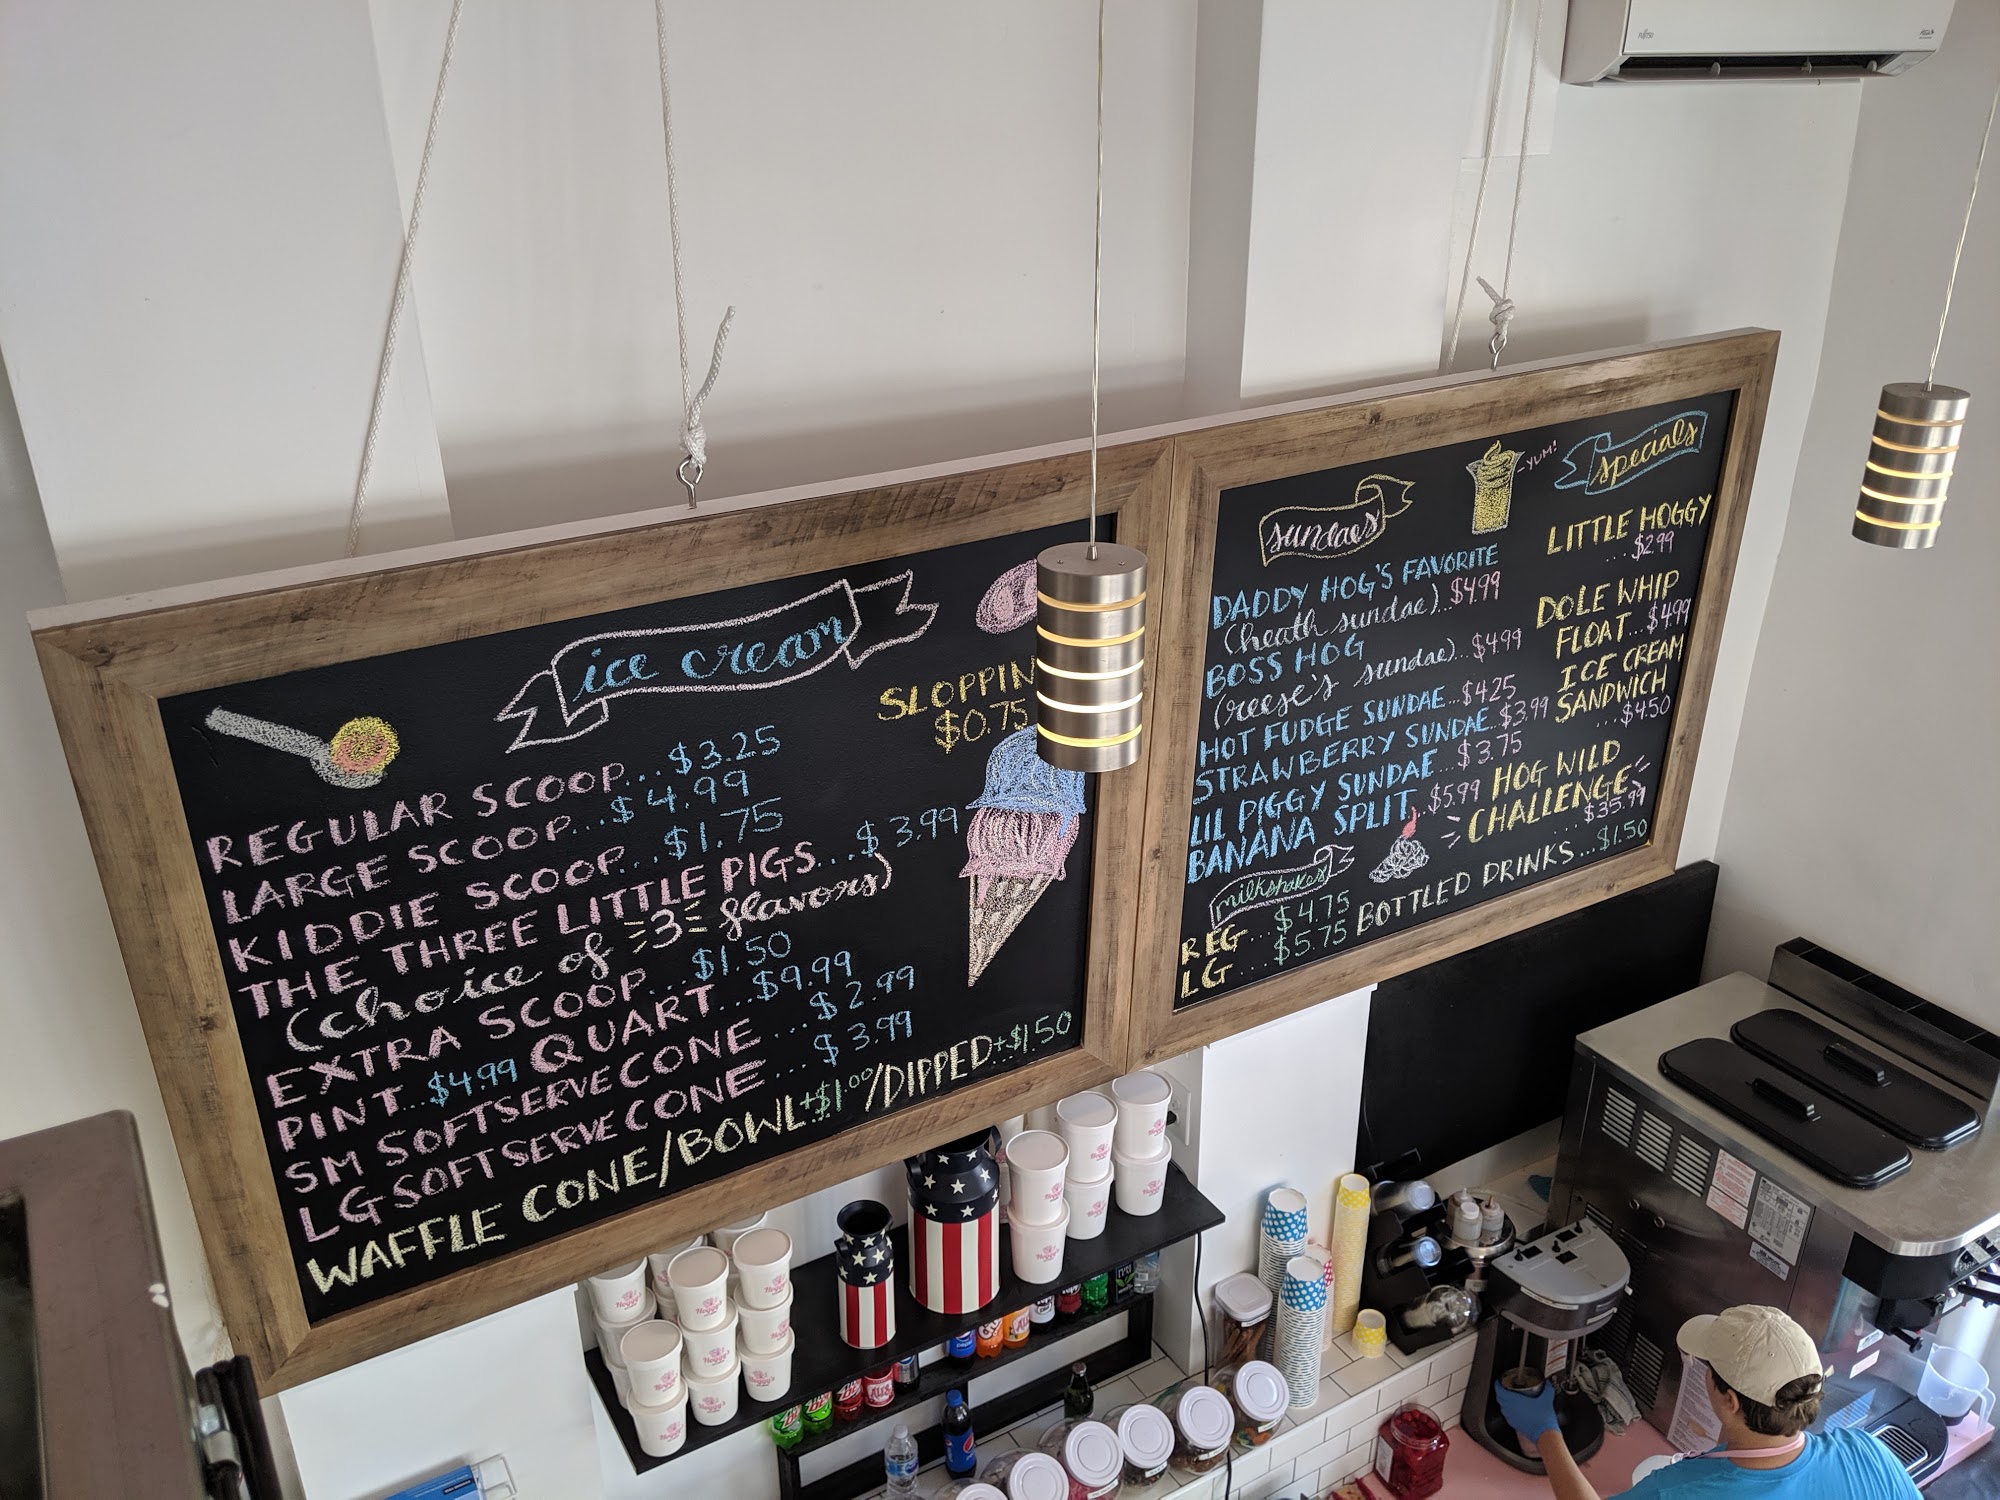 ice cream
SLOPPIN
$0.75
REGULAR SCOOP...$3.25
LARGE SCOOP...$4.99
KIDDIE SCOOP...$1.75
THE THREE LITTLE PIGS...$3.99
(choice of 3 flavors)
EXTRA SCOOP...$1.50
PINT...$4.99 QUART...$9.99
SM SOFTSERVE CONE...$2.99
LG SOFTSERVE CONE...$3.99
WAFFLE CONE/BOWL+$1.00/DIPPED+$1.50
sundaes
DADDY HOG'S FAVORITE
(heath sundae)...$4.99
BOSS HOG
(reese's sundae)...$4.99
HOT FUDGE SUNDAE...$4.25
STRAWBERRY SUNDAE...$3.99
LIL PIGGY SUNDAE...$3.75
BANANA SPLIT...$5.99
milkshakes
REG...$4.75
LG...$5.75
-YUM!
specials
LITTLE HOGGY
...$2.99
DOLE WHIP
FLOAT...$4.99
ICE CREAM
SANDWICH
...$4.50
HOG WILD
CHALLENGE
...$35.99
BOTTLED DRINKS...$1.50
FUJITSU